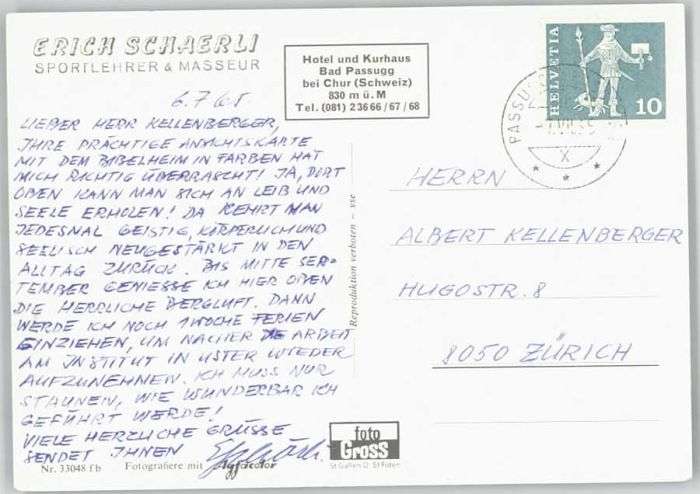 ERICH SCHAERLI
SPORTLEHRER & MASSEUR
Hotel und Kurhaus
Bad Passugg
bei Chur (Schweiz)
830 m ü. M
Tel. (081) 2 36 66 / 67 / 68
HELVETIA
10
PASSUGG
X
6.7.65
LIEBER HERR KELLENBERGER,
IHRE PRÄCHTIGE ANSICHTSKARTE
MIT DEM BIBELHEIM IN FARBEN HAT
MICH RICHTIG ÜBERRASCHT! JA, DORT
OBEN KANN MAN SICH AN LEIB UND
SEELE ERHOLEN! DA KEHRT MAN
JEDESMAL GEISTIG, KÖRPERLICH UND
SEELISCH NEUGESTÄRKT IN DEN
ALLTAG ZURÜCK. BIS MITTE SEP-
TEMBER GENIESSE ICH HIER OBEN
DIE HERRLICHE BERGLUFT. DANN
WERDE ICH NOCH 1 WOCHE FERIEN
EINZIEHEN, UM NACHER DIE ARBEIT
AM INSTITUT IN USTER WIEDER
AUFZUNEHMEN. ICH MUSS NUR
STAUNEN, WIE WUNDERBAR ICH
GEFÜHRT WERDE!
VIELE HERZLICHE GRÜSSE
SENDET IHNEN
HERRN
ALBERT KELLENBERGER
HUGOSTR. 8
8050 ZÜRICH
Reproduktion verboten - vse
Nr. 33048 fb
Fotografiere mit Agfacolor
foto
Gross
St Gallen